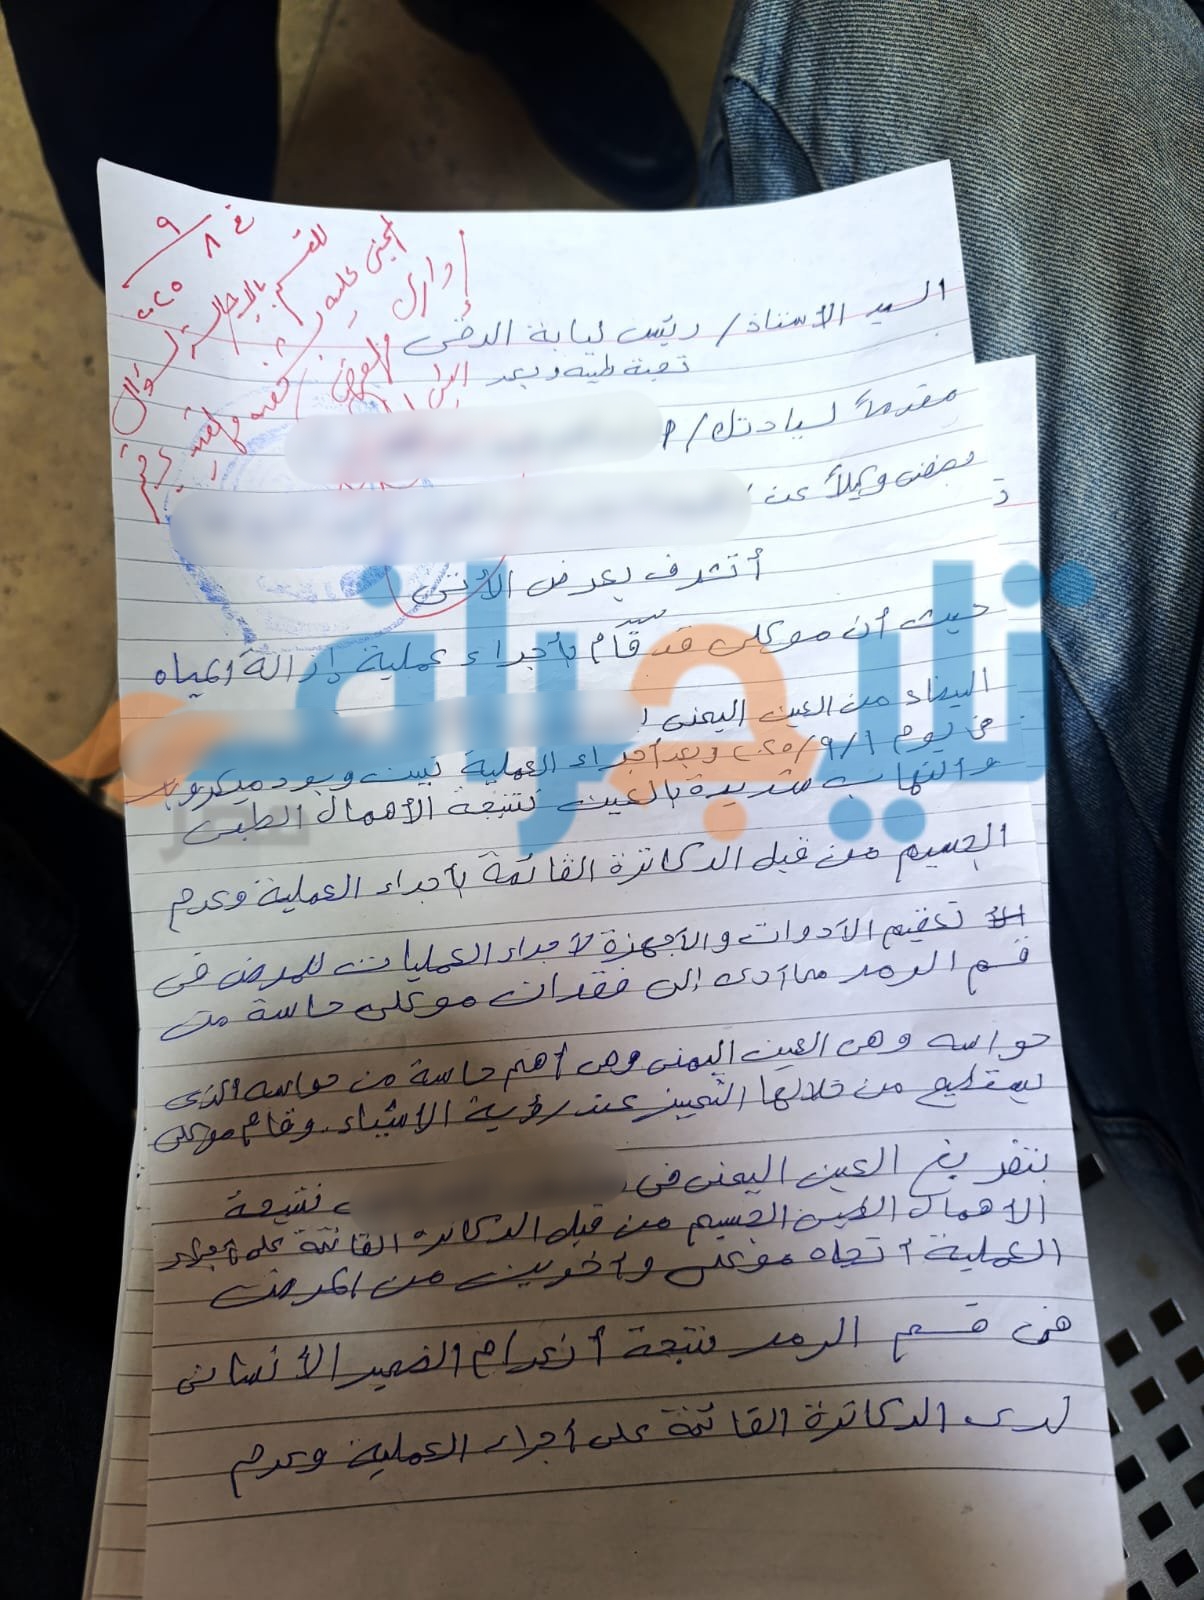 السيد الأستاذ/ رئيس نيابة الدقى
تحية طيبة وبعد
مقدمة لسيادتك/
بصفتى وكيلاً عن
أتشرف بعرض الأتى
حيث أن موكلى قد قام بأجراء عملية إزالة المياه
البيضاء من العين اليمنى
فى يوم ١/٩/ وبعد أجراء العملية تبين وجود ميكروب
والتهاب شديدة بالعين نتيجة الأهمال الطبى
الجسيم من قبل الدكاترة القائمة بأجراء العملية وعدم
تعقيم الآدوات والأجهزة لأجراء العمليات للمرضى فى
قسم الرمد مما آدى إلى فقدان موكلى حاسة من
حواسه وهى العين اليمنى وهى أهم حاسة من حواسه الذى
يستطيع من خلالها التمييز عند رؤية الأشياء وقام موكلى
بتفريغ العين اليمنى فى نتيجة
الأهمال الطبى الجسيم من قبل الدكاترة القائمة على أجراء
العملية أتجاه موكلى وأخرين من المرضى
فى قسم الرمد نتيجة أنعدام الضمير الأنسانى
لدى الدكاترة القائمة على أجراء العملية وعدم
للقسم بالإحالة لسؤال
المجنى عليه
فى ٨/٩
٢٠٢٥
تايجراف
مصر